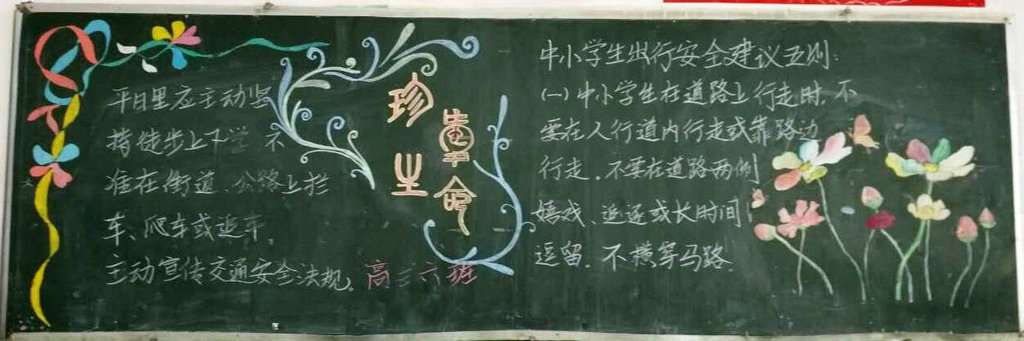 平日里应主动坚
持徒步上下学 不
准在街道、公路上拦
车、爬车或追车,
主动宣传交通安全法规。高三六班
珍惜生命
中小学生出行安全建议五则:
(一)中小学生在道路上行走时,不
要在人行道内行走或靠路边
行走.不要在道路两侧
嬉戏、追逐或长时间
逗留.不横穿马路.